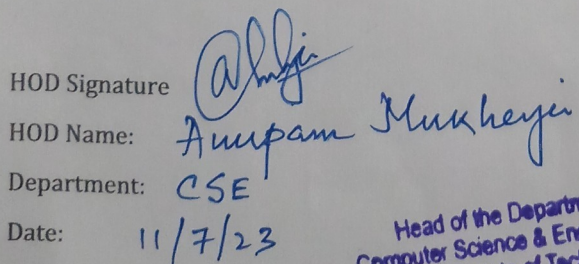 HOD Signature
HOD Name: Anupam Mukherji
Department: CSE
Date: 11/7/23
Head of the
Computer Science &
of